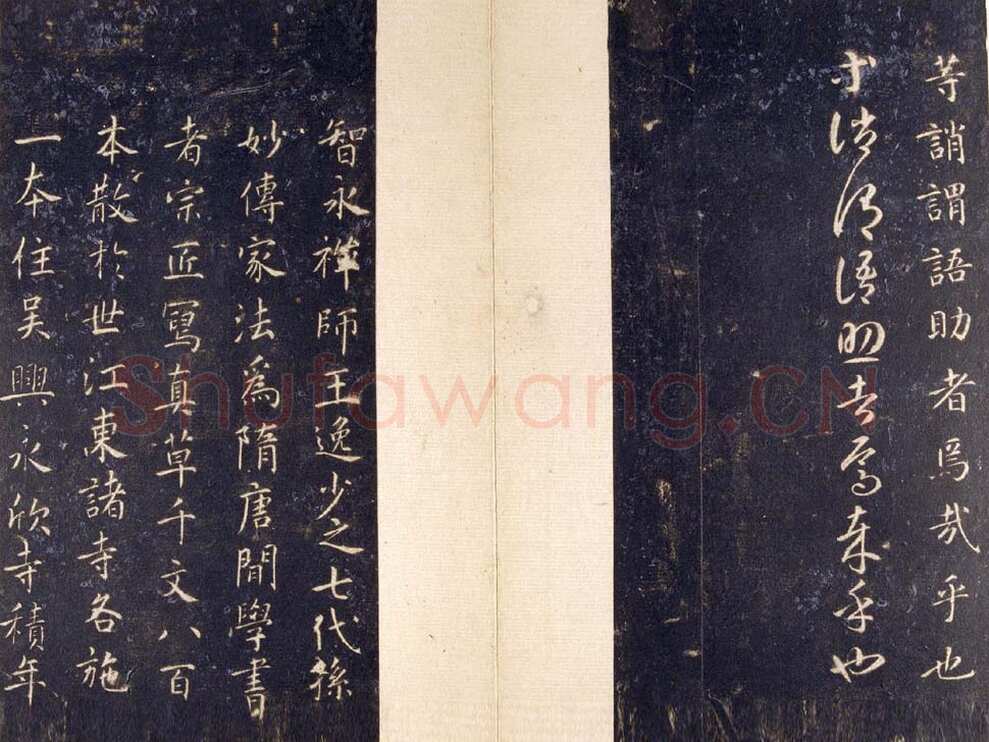 等誚謂語助者焉哉乎也
等誚謂語助者焉哉乎也
智永禪師王逸少之七代孫
妙傳家法為隋唐間學書
者宗匠寫真草千文八百
本散於世江東諸寺各施
一本住吳興永欣寺積年
Shufawang.CN